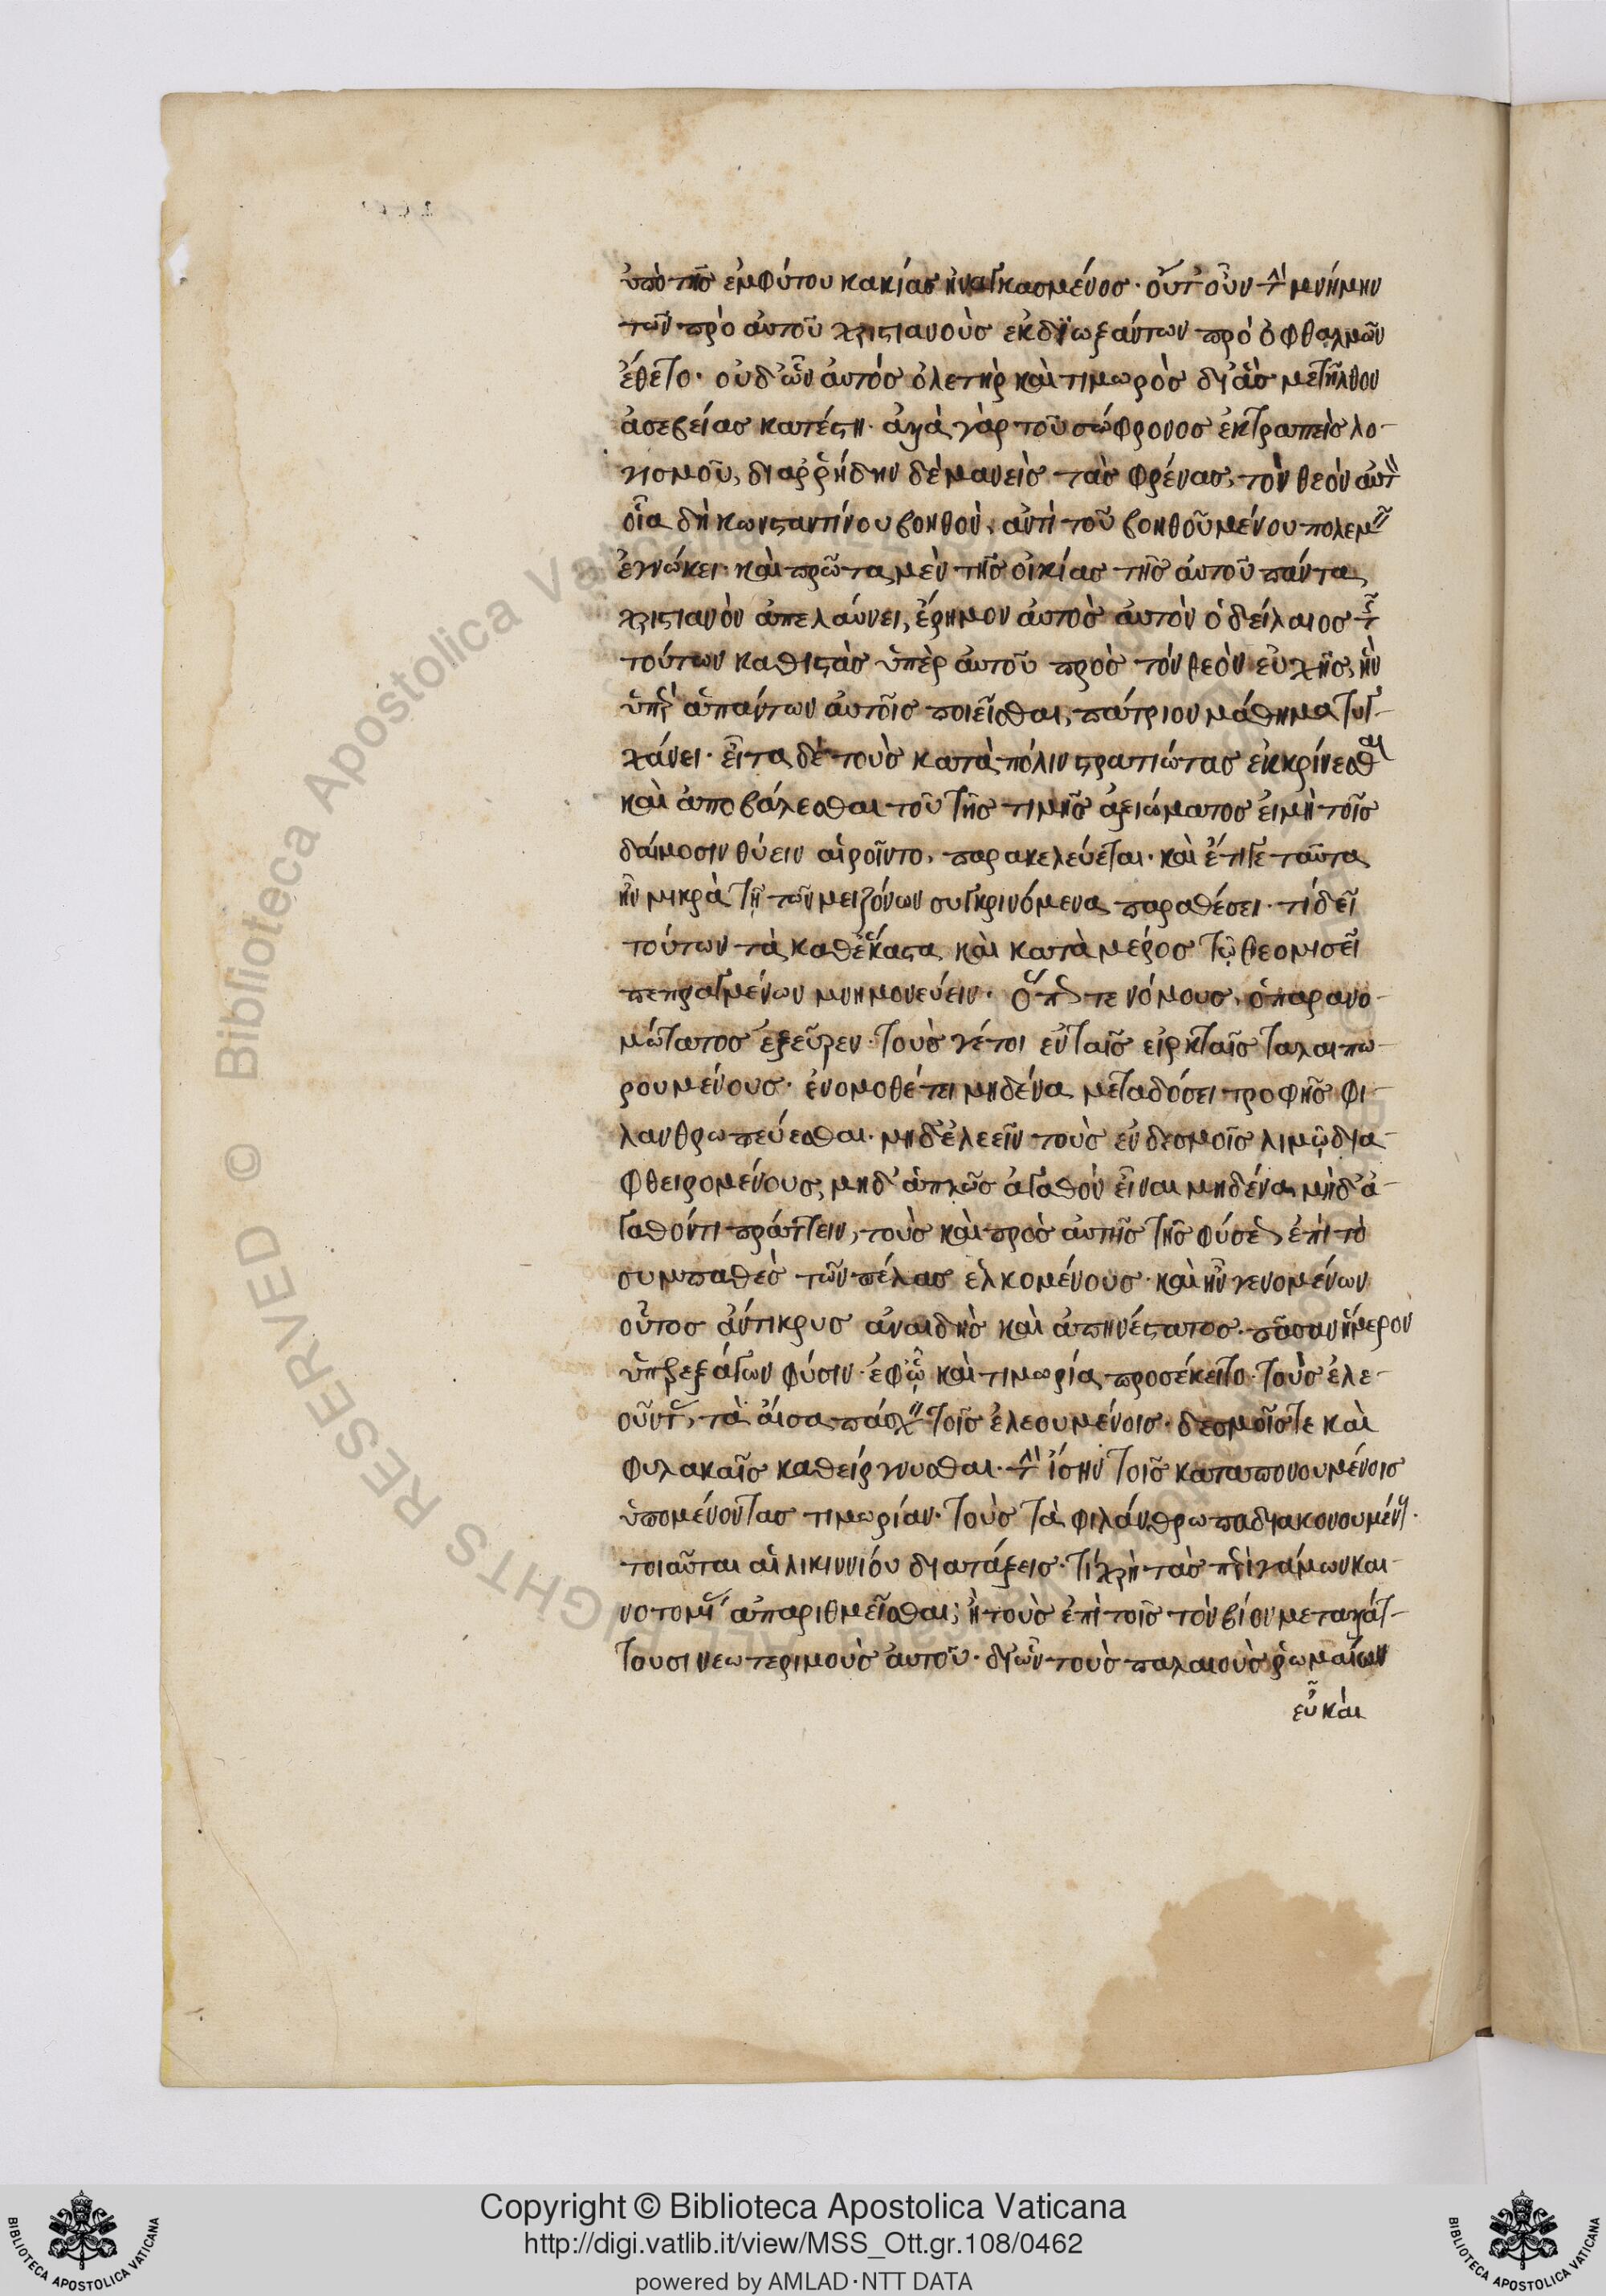 ὑπὸ τῆς ἐμφύτου κακίας ἠναγκασμένος. οὔτ' οὖν τὴν μνήμην
τῶν πρὸ αὐτοῦ χριστιανοὺς ἐκδιωξάντων πρὸ ὀφθαλμῶν
ἔθετο. οὐδ' ὧν αὐτὸς ὀλετὴρ καὶ τιμωρὸς δι' ἃς μετῆλθον
ἀσεβείας κατέστη. ἀλλὰ γὰρ τοῦ σώφρονος ἐκτραπεὶς λο-
γισμοῦ, διαρρήδην δὲ μανεὶς τὰς φρένας, τὸν θεὸν αὐτὸν
οἷα δὴ κωνσταντίνου βοηθὸν, ἀντὶ τοῦ βοηθουμένου πολεμεῖν
ἐγνώκει. καὶ πρῶτα μὲν τῆς οἰκίας τῆς αὐτοῦ πάντα
χριστιανὸν ἀπελαύνει, ἔρημον αὐτὸς αὐτὸν ὁ δείλαιος τῆς
τούτων καθιστὰς ὑπὲρ αὐτοῦ πρὸς τὸν θεὸν εὐχῆς, ἣν
ὑπὲρ ἁπάντων αὐτοῖς ποιεῖσθαι, πάτριον μάθημα τυγ-
χάνει. εἶτα δὲ τοὺς κατὰ πόλιν στρατιώτας ἐκκρίνεσθαι
καὶ ἀποβάλεσθαι τοῦ τῆς τιμῆς ἀξιώματος εἰ μὴ τοῖς
δαίμοσιν θύειν αἱροῖντο, παρακελεύεται. καὶ ἔτι γε ταῦτα
ἦν μικρὰ τῇ τῶν μειζόνων συγκρινόμενα παραθέσει. τί δεῖ
τούτων τὰ καθ' ἕκαστα καὶ κατὰ μέρος τῷ θεομισεῖ
πεπραγμένων μνημονεύειν. ὅπως τε νόμους ὁ παρανο-
μώτατος ἐξεῦρεν. τοὺς γέ τοι ἐν ταῖς εἱρκταῖς ταλαιπω-
ρουμένους. ἐνομοθέτει μηδένα μεταδόσει τροφῆς φι-
λανθρωπεύεσθαι. μηδ' ἐλεεῖν τοὺς ἐν δεσμοῖς λιμῷ δια-
φθειρομένους, μηδ' ἁπλῶς ἀγαθὸν εἶναι μηδένα, μηδ' ἀ-
γαθόν τι πράττειν, τοὺς καὶ πρὸς αὐτῆς τῆς φύσεως ἐπὶ τὸ
συμπαθὲς τῶν πέλας ἑλκομένους. καὶ ἦν γενομένων
οὗτος ἄντικρυς ἀναιδὴς καὶ ἀπηνέστατος. πᾶσαν ἥμερον
ὑπερεξάγων φύσιν. ἐφ' ᾧ καὶ τιμωρία προσέκειτο. τοὺς ἐλε-
οῦντας, τὰ ἴσα πάσχειν τοῖς ἐλεουμένοις. δεσμοῖς τε καὶ
φυλακαῖς καθείργνυσθαι. τὴν ἴσην τοῖς καταπονουμένοις
ὑπομένοντας τιμωρίαν. τοὺς τὰ φιλάνθρωπα διακονουμένους.
τοιαῦται αἱ λικιννίου διατάξεις. τί χρὴ τὰς περὶ γάμων και-
νοτομίας ἀπαριθμεῖσθαι; ἢ τοὺς ἐπὶ τοῖς τὸν βίον μεταλλάτ-
τουσι νεωτερισμοὺς αὐτοῦ. δι' ὧν τοὺς παλαιοὺς ῥωμαίων
εὖ καὶ
Copyright © Biblioteca Apostolica Vaticana
http://digi.vatlib.it/view/MSS_Ott.gr.108/0462
powered by AMLAD·NTT DATA
BIBLIOTECA APOSTOLICA VATICANA
BIBLIOTECA APOSTOLICA VATICANA